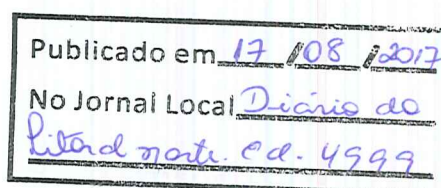 Publicado em 17 /08 /2017
No Jornal Local Diário do
Litoral norte. ed. 4999